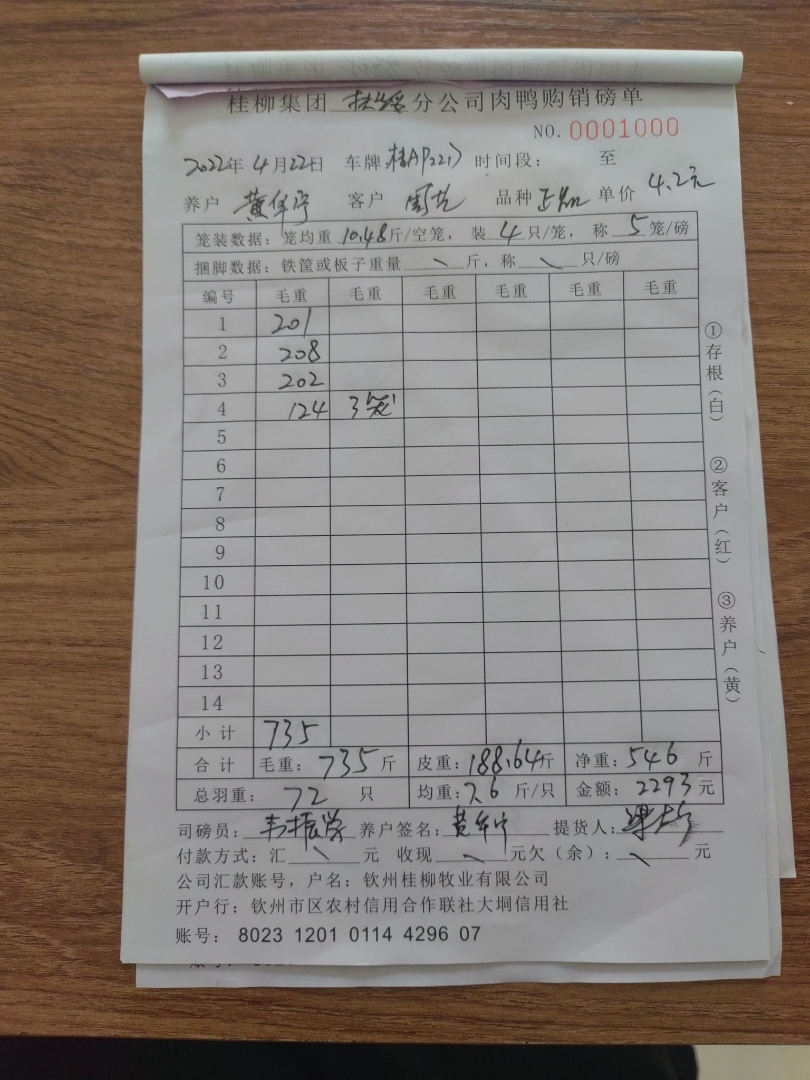 桂柳集团 扶绥 分公司肉鸭购销磅单
NO. 0001000
2022年 4月22日 车牌: 时间段: 至
养户 黄年宁 客户 品种 单价 4.2元
笼装数据: 笼均重 10.48斤/空笼, 装 4 只/笼, 称 5 笼/磅
捆脚数据: 铁筐或板子重量 \ 斤, 称 \ 只/磅
编号 毛重 毛重 毛重 毛重 毛重 毛重
1 201
2 208
3 202
4 124 3笼
5
6
7
8
9
10
11
12
13
14
小计 735
合计 毛重: 735 斤 皮重: 188.64斤 净重: 546 斤
总羽重: 72 只 均重: 7.6 斤/只 金额: 2293 元
司磅员: 韦振学 养户签名: 黄年宁 提货人:
付款方式: 汇 \ 元 收现 \ 元欠(余): \ 元
公司汇款账号, 户名: 钦州桂柳牧业有限公司
开户行: 钦州市区农村信用合作联社大垌信用社
账号: 8023 1201 0114 4296 07
①存根(白)
②客户(红)
③养户(黄)